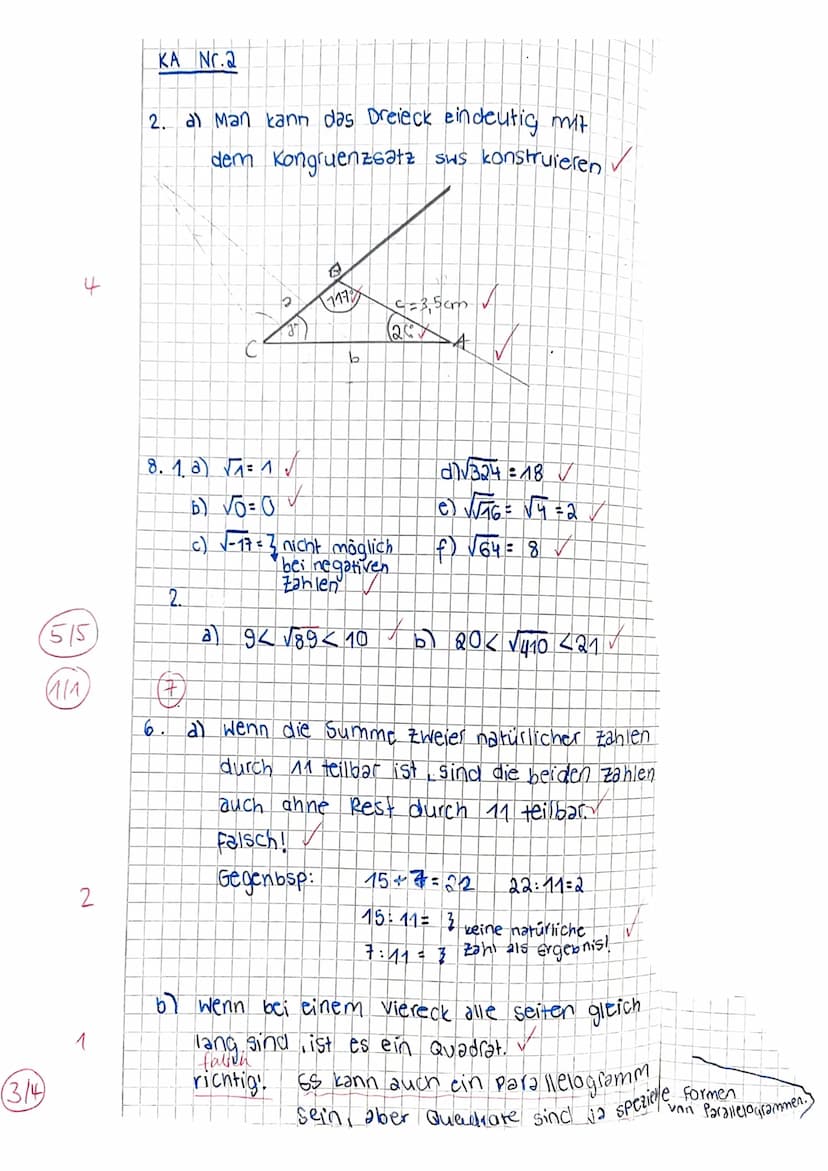 KA Nr.2
2. a) Man kann das Dreieck eindeutig mit
dem Kongruenzsatz sws konstruieren ✓
4
B
a
117°
c=3,5cm ✓
26° ✓
C
A ✓
b
8. 1. a) √1 = 1 ✓
d) √324 = 18 ✓
b) √0 = 0 ✓
e) √√16 = √4 = 2 ✓
c) √-17 = nicht möglich
bei negativen
Zahlen ✓
f) √64 = 8 ✓
2.
5/5
a) 9 < √89 < 10 ✓ b) 20 < √410 < 21 ✓
1/1
7
6. a) Wenn die Summe zweier natürlicher Zahlen
durch 11 teilbar ist, sind die beiden Zahlen
auch ohne Rest durch 11 teilbar. ✓
Falsch! ✓
Gegenbsp: 15 + 7 = 22 22:11=2
2
15:11= keine natürliche ✓
7:11= Zahl als ergebnis!
b) Wenn bei einem Viereck alle seiten gleich
1
lang sind, ist es ein Quadrat. ✓
falsch
3/4
richtig! Es kann auch ein Parallelogramm
sein, aber Quadrate sind ja spezielle Formen
von Parallelogrammen.